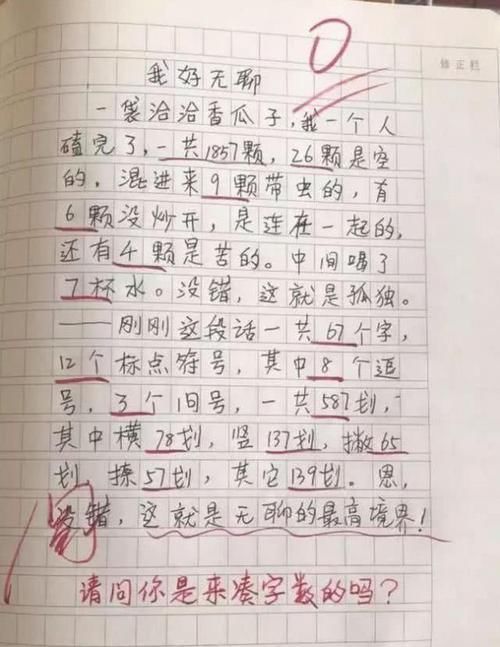 0
修正栏
我好无聊
一袋洽洽香瓜子，我一个人
磕完了，一共1857颗，26颗是空
的，混进来9颗带虫的，有
6颗没炒开，是连在一起的，
还有4颗是苦的。中间喝了
7杯水。没错，这就是孤独。
——刚刚这段话一共67个字，
12个标点符号，其中8个逗
号，3个旧号，一共587划，
其中横78划，竖137划，撇65
划，捺57划，其它139划。恩，
没错，这就是无聊的最高境界！
请问你是来凑字数的吗？